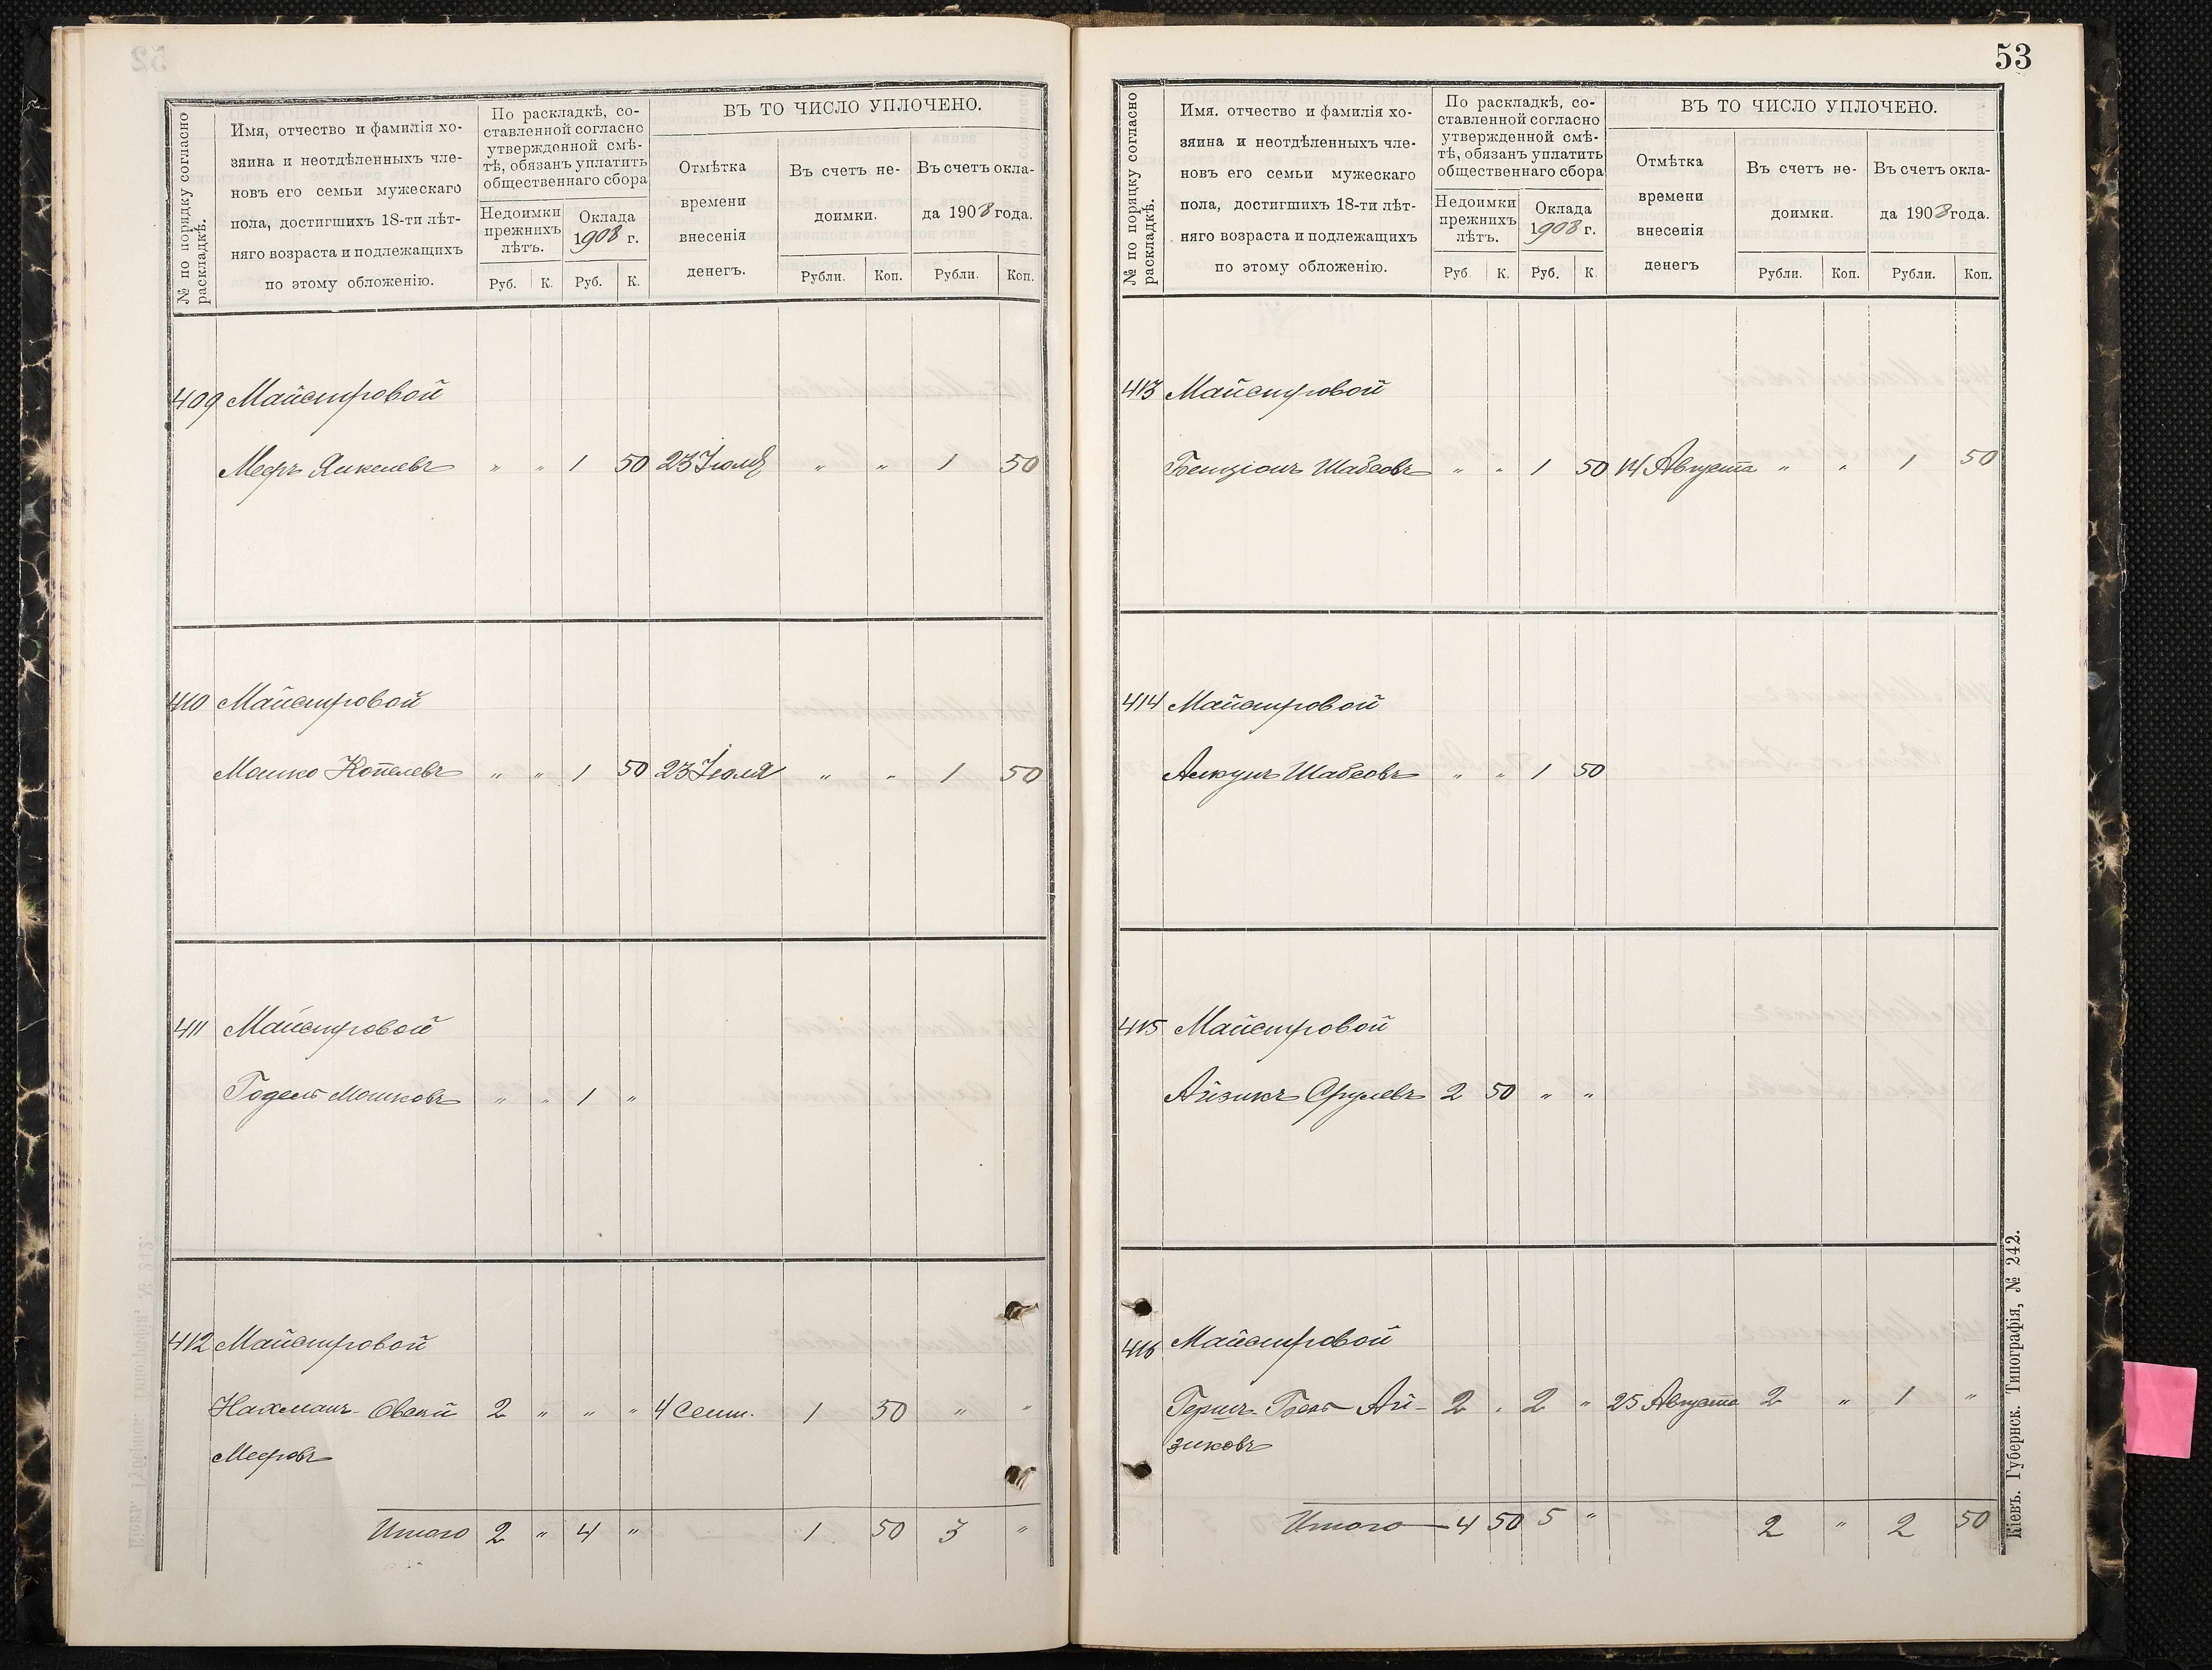 № по порядку согласно
раскладкѣ.
Имя, отчество и фамилія хо-
зяина и неотдѣленныхъ чле-
новъ его семьи мужескаго
пола, достигшихъ 18-ти лѣт-
няго возраста и подлежащихъ
по этому обложенію.
По раскладкѣ, со-
ставленной согласно
утвержденной смѣ-
тѣ, обязанъ уплатить
общественнаго сбора
Недоимки
прежнихъ
лѣтъ.
Оклада
1908 г.
Руб. К. Руб. К.
ВЪ ТО ЧИСЛО УПЛОЧЕНО.
Отмѣтка
времени
внесенія
денегъ.
Въ счетъ не-
доимки.
Въ счетъ окла-
да 1908 года.
Рубли. Коп. Рубли. Коп.
409 Майстровой
Меръ Янкелевъ " " 1 50 23 Іюля " " 1 50
410 Майстровой
Мошко Копелевъ " " 1 50 23 Іюля " " 1 50
411 Майстровой
Годель Мошковъ " " 1 "
412 Майстровой
Нахманъ-Овсей 2 " " " 4 Сент. 1 50 " "
Меровъ
Итого 2 " 4 " 1 50 3 "
53
№ по порядку согласно
раскладкѣ.
Имя. отчество и фамилія хо-
зяина и неотдѣленныхъ чле-
новъ его семьи мужескаго
пола, достигшихъ 18-ти лѣт-
няго возраста и подлежащихъ
по этому обложенію.
По раскладкѣ, со-
ставленной согласно
утвержденной смѣ-
тѣ, обязанъ уплатить
общественнаго сбора
Недоимки
прежнихъ
лѣтъ.
Оклада
1908 г.
Руб К. Руб. К.
ВЪ ТО ЧИСЛО УПЛОЧЕНО.
Отмѣтка
времени
внесенія
денегъ
Въ счетъ не-
доимки.
Въ счетъ окла-
да 1908 года.
Рубли. Коп. Рубли. Коп.
413 Майстровой
Бенціонъ Шабсовъ " " 1 50 14 Августа " " 1 50
414 Майстровой
Шабсовъ " " 1 50
415 Майстровой
Айзикъ Срулевъ 2 50 " "
416 Майстровой
Гершъ-Беръ Ай- 2 " 2 " 25 Августа 2 " 1 "
зиковъ
Итого 4 50 5 " 2 " 2 50
Кіевъ. Губернск. Типографія, № 242.